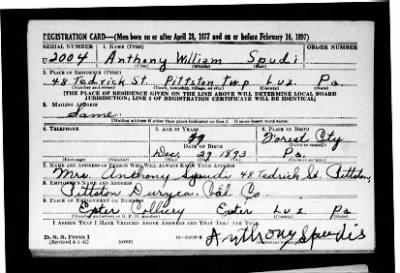 REGISTRATION CARD—(Men born on or after April 28, 1877 and on or before February 16, 1897)
SERIAL NUMBER 1. NAME (Print) ORDER NUMBER
U 2004 Anthony William Spudi
(First) (Middle) (Last)
2. PLACE OF RESIDENCE (Print)
48 Tedrick St. Pittston Twp Luz. Pa.
(Number and street) (Town, township, village, or city) (County) (State)
[THE PLACE OF RESIDENCE GIVEN ON THE LINE ABOVE WILL DETERMINE LOCAL BOARD
JURISDICTION; LINE 2 OF REGISTRATION CERTIFICATE WILL BE IDENTICAL]
3. MAILING ADDRESS
Same
[Mailing address if other than place indicated on line 2. If same insert word same]
4. TELEPHONE 5. AGE IN YEARS 6. PLACE OF BIRTH
Forest City
DATE OF BIRTH
Dec. 29 1893 Pa.
(Exchange) (Number) (Mo.) (Day) (Yr.) (State or country)
7. NAME AND ADDRESS OF PERSON WHO WILL ALWAYS KNOW YOUR ADDRESS
Mrs. Anthony Spudi 48 Tedrick St. Pittston,
8. EMPLOYER'S NAME AND ADDRESS
Pittston Duryea Coal Co.
9. PLACE OF EMPLOYMENT OR BUSINESS
Exeter Colliery Exeter Luz Pa
(Number and street or R. F. D. number) (Town) (County) (State)
I AFFIRM THAT I HAVE VERIFIED ABOVE ANSWERS AND THAT THEY ARE TRUE.
D. S. S. Form 1
(Revised 4-1-42) (over) Anthony Spudis